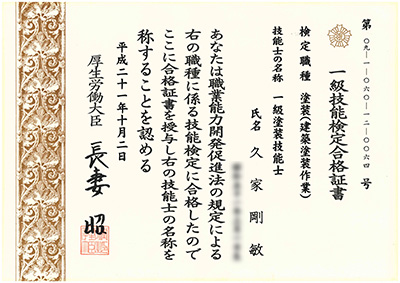 第〇九-一-〇六〇-一二-〇〇六四号
一級技能検定合格証書
検定職種 塗装(建築塗装作業)
技能士の名称 一級塗装技能士
氏名 久家剛敏
あなたは職業能力開発促進法の規定による
右の職種に係る技能検定に合格したので
ここに合格証書を授与し右の技能士の名称を
称することを認める
平成二十一年十月二日
厚生労働大臣 長妻昭